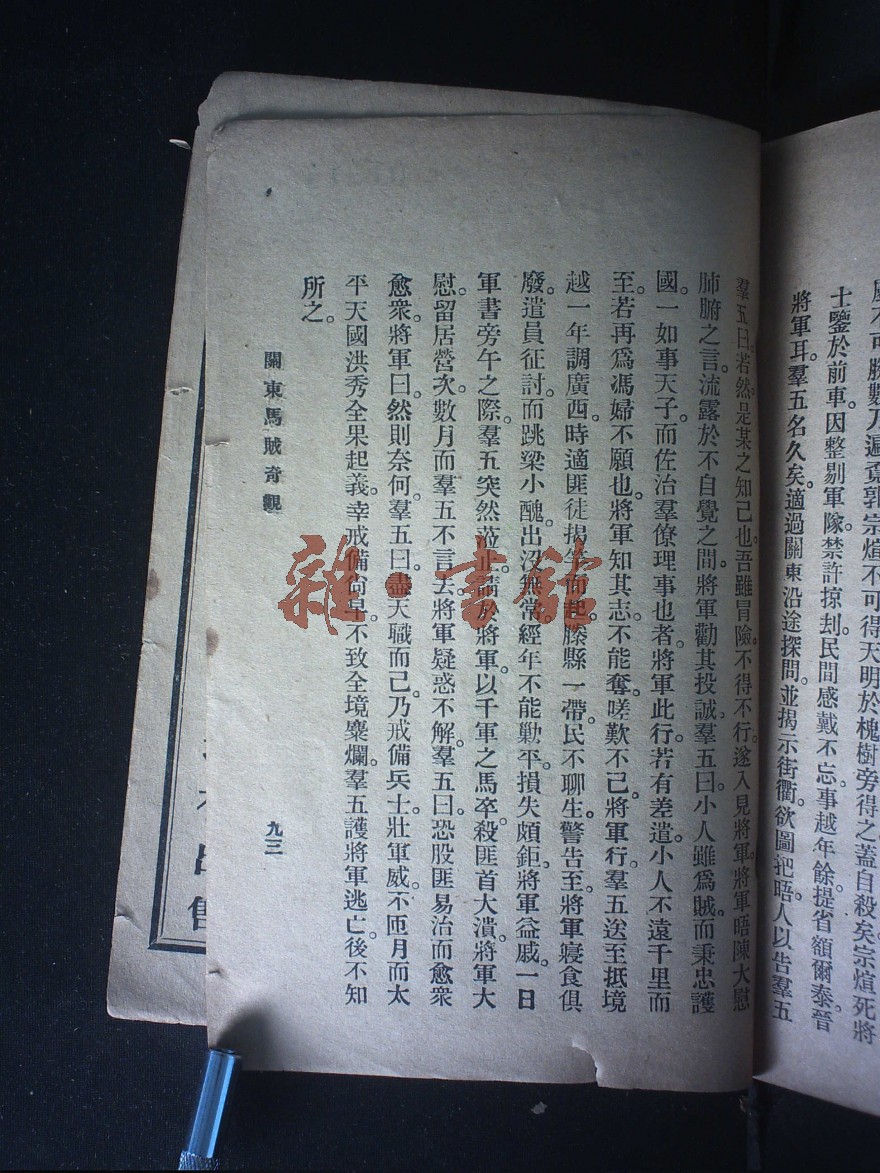 不可勝數乃遍覓郭宗煊不可得天明於槐樹旁得之蓋自殺矣宗煊死將
士鑒於前車。因整剔軍隊。禁許掠刦民間感戴不忘。事越年餘。提省額爾泰晉
將軍耳羣五名久矣。適過關東沿途探問。並揭示街衢。欲圖把晤人以告羣五
羣五曰。若然。是某之知己也。吾雖冒險。不得不行。遂入見將軍。將軍晤陳大慰
肺腑之言。流露於不自覺之間。將軍勸其投誠。羣五曰。小人雖爲賊。而秉忠護
國。一如事天子。而佐治羣僚理事也。者將軍此行。若有差遣。小人不遠千里而
至。若再爲馮婦不願也。將軍知其志。不能奪。嗟歎不已。將軍行。羣五送至抵境
越一年。調廣西。時適匪徒揭竿而起。滕縣一帶。民不聊生。警告至。將軍寢食俱
廢。遣員征討。而跳梁小醜。出沒無常。經年不能勦平。損失頗鉅。將軍益戚。一日
軍書旁午之際。羣五突然蒞止。請於將軍。以千軍之馬卒。殺匪首大潰。將軍大
慰。留居營次。數月而羣五不言去。將軍疑惑不解。羣五曰。恐股匪易治。而愈衆
愈衆。將軍曰。然則奈何。羣五曰。盡天職而已。乃戒備兵士。壯軍威。不匝月而太
平天國洪秀全果起義。幸戒備尙早。不致全境麋爛。羣五護將軍逃亡。後不知
所之。
關東馬賊奇觀
九三
雜·書館
售